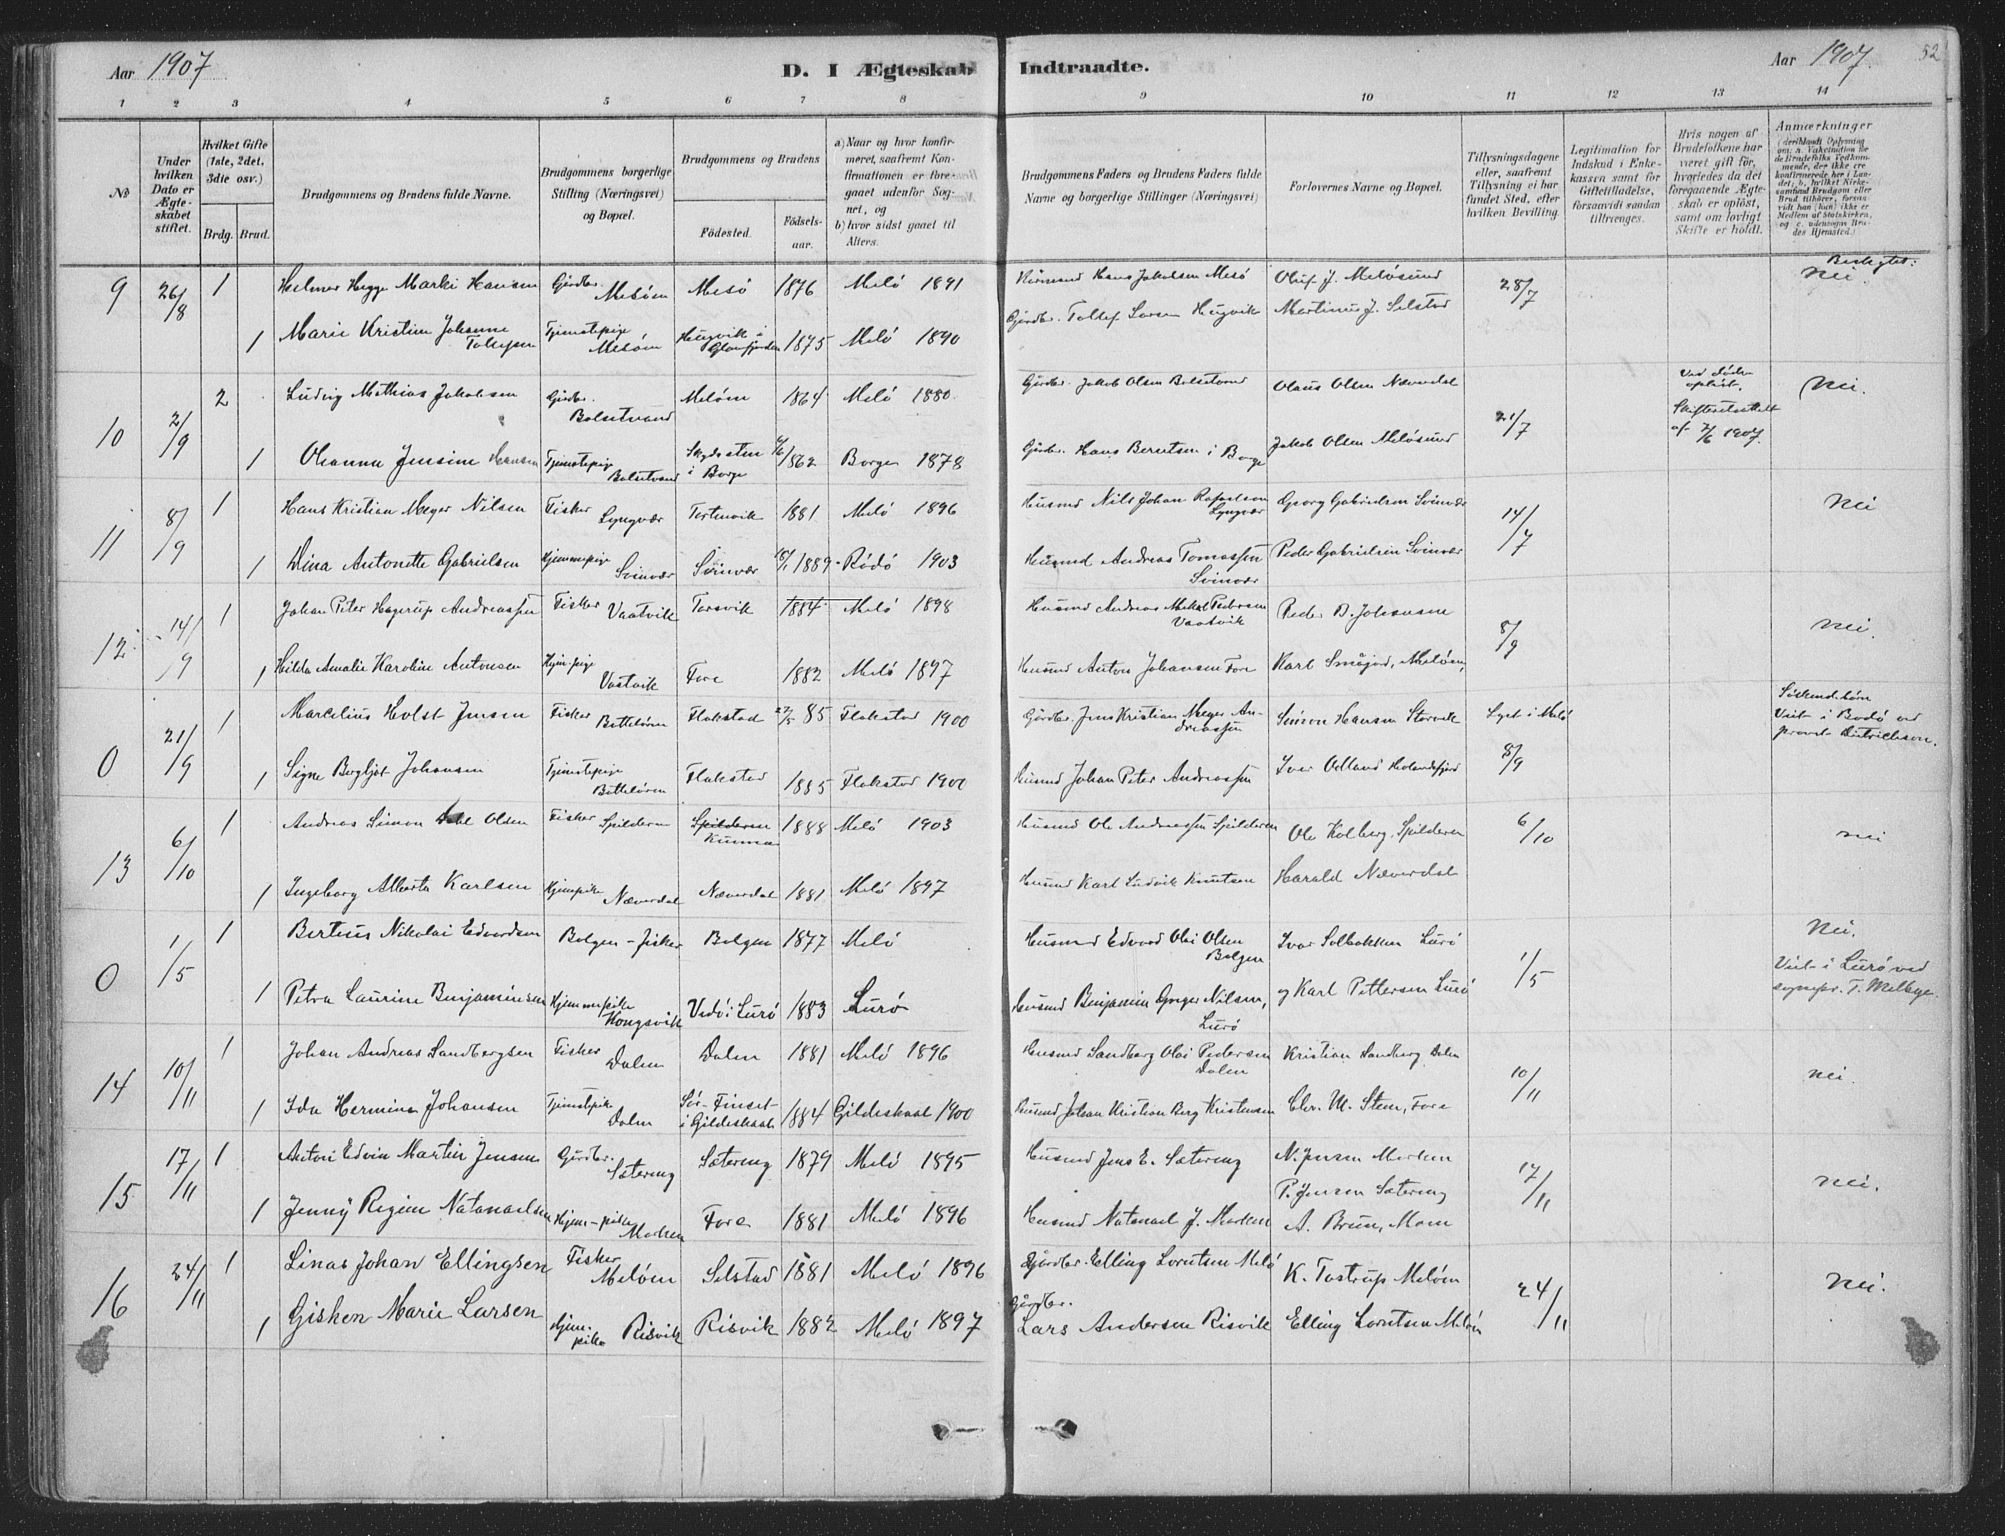 Aar 1907
D. I Ægteskab Indtraadte.
Aar 1907.
52
1 2 3 4 5 6 7 8 9 10 11 12 13 14
No
Under hvilken Dato er Ægteskabet stiftet.
Hvilket Gifte (1ste, 2det, 3die osv.)
Brdg. Brud.
Brudgommens og Brudens fulde Navne.
Brudgommens borgerlige Stilling (Næringsvei) og Bopæl.
Brudgommens og Brudens
Fødested.
Fødselsaar.
a) Naar og hvor konfirmeret, saafremt Konfirmationen er foregaaet udenfor Sognet, og
b) hvor sidst gaaet til Alters.
Brudgommens Faders og Brudens Faders fulde Navne og borgerlige Stillinger (Næringsvei)
Forlovernes Navne og Bopæl.
Tillysningsdagene eller, saafremt Tillysning ei har fundet Sted, efter hvilken Bevilling.
Legitimation for Indskud i Enkekassen samt for Giftetilladelse, forsaavidt saadan tiltrænges.
Hvis nogen af Brudefolkene har været gift før, hvorledes da det foregaaende Ægteskab er opløst, samt om lovligt Skifte er holdt.
Anmærkninger
9 26/8 1 Helmer Hegge Marki Hansen Gårdbr. Mesøen Mesö 1876 Melö 1891 Hans Jakobsen Mesö Oluf J. Melösund 28/7 Beslegtet: nei.
1 Marie Kristine Johanne Tollefsen Tjenestepige Mesöen Haugvik i Glomfjorden 1875 Melö 1890 Gårdbr. Tollef Larsen Haugvik Martinus J. Selstad
10 2/9 2 Ludvig Mathias Jakobsen Gårdbr. Bolsetvand Melöen 1864 Melö 1880. Gårdbr. Jakob Olsen Bolsetvand Olaus Olsen Næverdal 21/7 Ved død opløst. Skifteretsattest af 7/6 1907. Nei.
1 Oleanna Jensine Hansen Tjenestepige Bolsetvand i Borge /862 Borge 1878 Gårdbr. Hans Berntsen i Borge Jakob Olsen Melösund
11 8/9 1 Hans Kristian Meyer Nilsen Fisker Lyngvær Tortenvik 1881 Melö 1896 Husmd Nils Johan Rafaelsen Lyngvær Georg Gabrielsen Svinvær 14/7 Nei
1 Dina Antonette Gabrielsen Hjemmepige Svinvær Svinvær 1889 Rödö 1903 Husmd Andreas Tomassen Svinvær Peder Gabrielsen Svinvær
12 14/9 1 Johan Peter Hagerup Andreassen Fisker Vaatvik Torsvik 1884 Melö 1898 Husmd Andreas Mikal Pedersen Vaatvik Peder B. Johansen 8/9 Nei.
1 Hilda Amalie Karoline Antonsen Hjem.pige Vaatvik Fore 1882 Melö 1897 Husmd Anton Johansen Fore Karl Småjord, Melöen,
0 21/9 1 Marcelius Holst Jensen Fisker Flakstad 27/5 85 Flakstad 1900 Gårdbr. Jens Kristian Meyer Andreassen Simon Hansen Storvik Lyst i Melö Söskendebörn Viet i Bodö ved provst
1 Signe Bergljot Johansen Tjenestepige Flakstad 1885 Flakstad 1900 Husmd Johan Peter Andreassen Iver Holandsfjord 8/9
13 6/10 1 Andreas Simon Dahl Olsen Fisker Spilderen Spilderen Kunna 1888 Melö 1903 Husmd Ole Andreassen Spilderen Ole Kolberg, Spilderen 6/10 nei
1 Ingeborg Alberta Karlsen Hjempike Næverdal Næverdal 1881 Melö 1897 Husmd Karl Ludvik Knutsen Harald Næverdal
0 1/5 1 Berteus Nikolai Edvardsen Bolgen - fisker Bolgen 1877 Melö Husmd Edvard Olai Olsen Bolgen Ivar Solbakken Lurö 1/5 Nei.
1 Petra Laurine Benjaminsen Hjemmepike Kongsvik i Lurö 1883 Lurö Husmd Benjamin Greger Nilsen, Lurö og Karl Pettersen Lurö Viet i Lurö ved sognepr. T. Melbye.
14 10/11 1 Johan Andreas Sandbergsen Fisker Dalen Dalen 1881 Melö 1896 Husmd Sandberg Olai Pedersen Dalen Kristian Sandberg Dalen 10/11 nei.
1 Ida Hermine Johansen Tjenestepike Dalen Sör-Finset i Gildeskaal 1884 Gildeskaal 1900 Husmd Johan Kristian Berg Kristensen Chr. M. Steen, Fore
15 17/11 1 Anton Edvin Martin Jensen Gårdbr. Sætereng Sætereng 1879 Melö 1895 Husmd Jens E. Sætereng N. Jensen Marken 17/11 nei.
P. Jensen Sætereng
1 Jenny Regine Natanaelsen Hjem-pike Marken Fore 1881 Melö 1896 Husmd Natanael J. Marken A. Brun, Moen
16 24/11 1 Linas Johan Ellingsen Fisker Melöen Selstad 1881 Melö 1896 Gårdbr. Elling Lorntsen Melö K. Tostrup Melöen 24/11 Nei.
1 Gisken Marie Larsen Hjem.pike Risvik Risvik 1882 Melö 1897 Gårdbr. Lars Andersen Risvik Elling Lorntsen Melöen